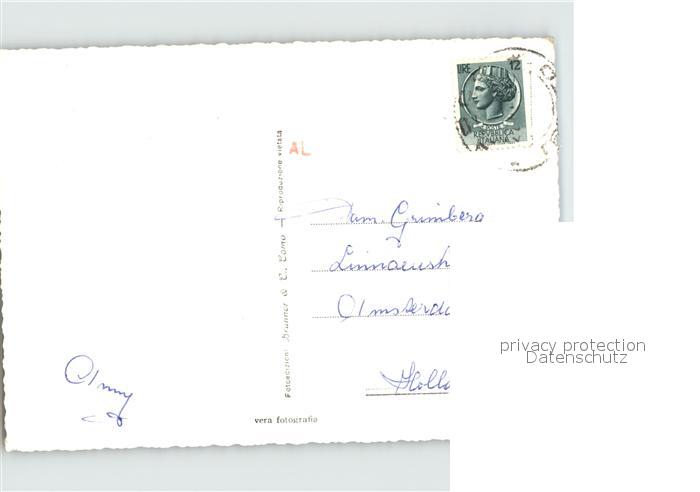 LIRE 12
POSTE
REPVBBLICA
ITALIANA
AL
Fotoedizioni Brunner & C., Como - Riproduzione vietata
Fam. Grimberg
Linnaeush
Amsterda
Holla
Anny
vera fotografia
privacy protection
Datenschutz